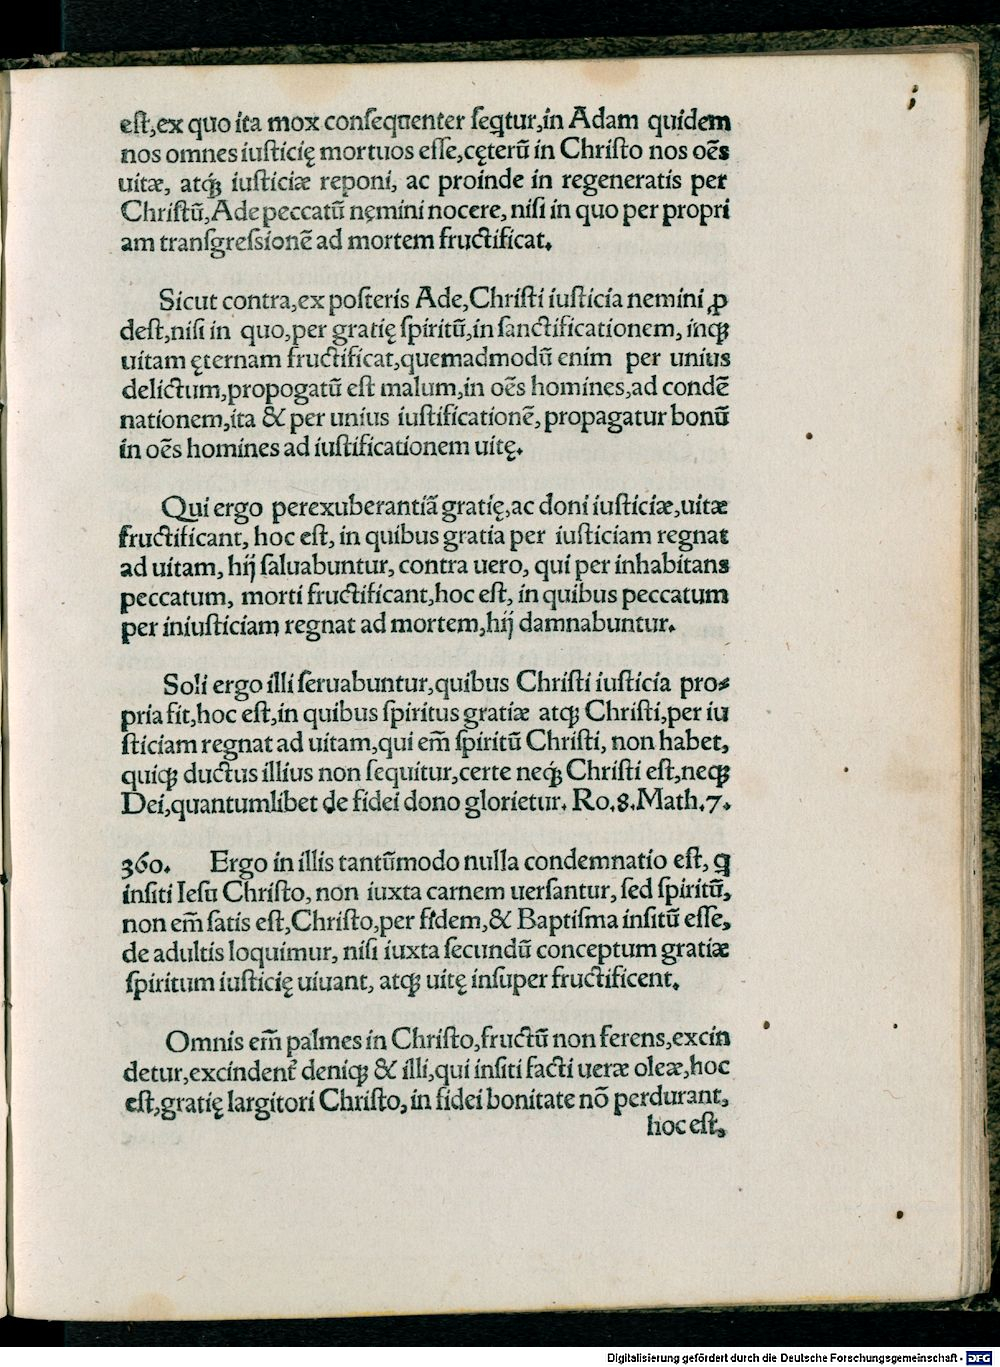 est,ex quo ita mox consequenter seqͥtur,in Adam quidem
nos omnes iusticię mortuos esse,cęterū in Christo nos oēs
uitæ, atq́ꝫ iusticiæ reponi, ac proinde in regeneratis per
Christū,Ade peccatū nęmini nocere, nisi in quo per propri
am transgressionē ad mortem fructificat.
Sicut contra,ex posteris Ade,Christi iusticia nemini ꝓ
dest,nisi in quo,per gratię spiritū,in sanctificationem, inqꝫ
uitam ęternam fructificat,quemadmodū enim per unius
delictum,propogatū est malum,in oēs homines,ad condē
nationem,ita & per unius iustificationē,propagatur bonū
in oēs homines ad iustificationem uitę.
Qui ergo perexuberantiā gratię,ac doni iusticiæ,uitæ
fructificant, hoc est, in quibus gratia per iusticiam regnat
ad uitam, hij saluabuntur, contra uero, qui per inhabitans
peccatum, morti fructificant,hoc est, in quibus peccatum
per iniusticiam regnat ad mortem,hij damnabuntur.
Soli ergo illi seruabuntur,quibus Christi iusticia pro⸗
pria fit,hoc est,in quibus spiritus gratiæ atqꝫ Christi,per iu
sticiam regnat ad uitam,qui em̄ spiritū Christi, non habet,
quiqꝫ ductus illius non sequitur,certe neq́ꝫ Christi est,neqꝫ
Dei,quantumlibet de fidei dono glorietur. Ro.8.Math.7.
360. Ergo in illis tantūmodo nulla condemnatio est, qͥ
insiti Iesu Christo, non iuxta carnem uersantur, sed spiritū,
non em̄ satis est,Christo,per fidem,& Baptisma insitū esse,
de adultis loquimur, nisi iuxta secundū conceptum gratiæ
spiritum iusticię uiuant, atqꝫ uitę insuper fructificent.
Omnis em̄ palmes in Christo,fructū non ferens,excin
detur,excindent᷑ deniqꝫ & illi,qui insiti facti ueræ oleæ,hoc
est,gratię largitori Christo,in fidei bonitate nō perdurant,
hoc est,
Digitalisierung gefördert durch die Deutsche Forschungsgemeinschaft - DFG